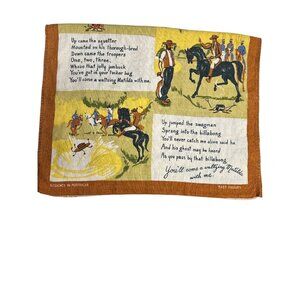 Up came the squatter
Mounted on his thorough-bred
Down came the troopers
One, two, three.
Whose that jolly jumbuck
You've got in your tucker bag
You'll come a waltzing Matilda with me.
Up jumped the swagman
Sprang into the billabong
You'll never catch me alive said he
And his ghost may be heard
As you pass by that billabong
You'll come a waltzing Matilda
with me.
DESIGNED IN AUSTRALIA